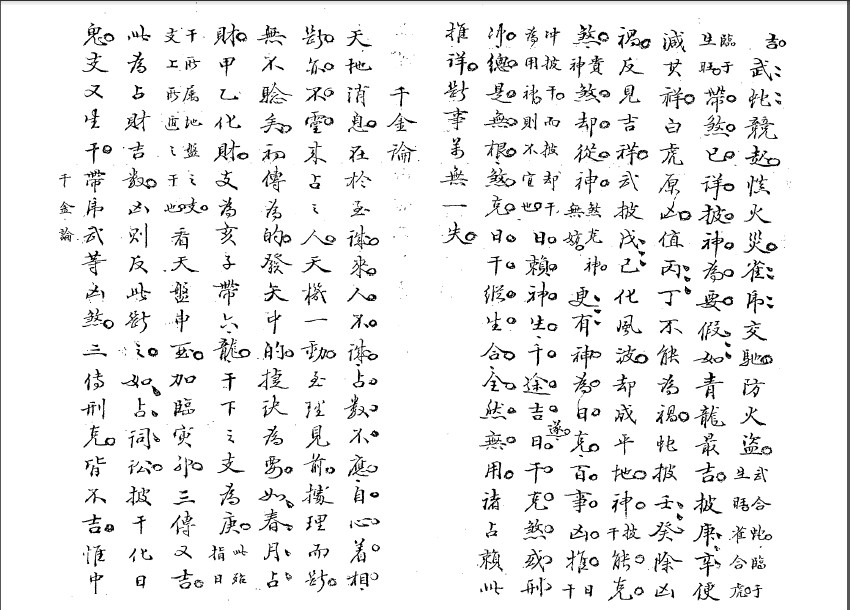 吉。武蛇競起。慎火災。雀虎交馳。防火盜。武合蛇。臨于生旺雀合虎
臨于生旺。帶煞。已詳。披神為要。假如青龍最吉。披庚辛便
減其祥。白虎原凶。值丙丁不能為禍。蛇披壬癸除凶
禍。反見吉祥。武披戊己化風波。却成平地。神披干能克。
煞。貴神煞却從神。煞克神無妨更有神為日克。百事凶。推日干
沖披干而披却干為用禍則不宜也。日賴神生。干途吉。遂日干克煞。或刑
沖。總是無根。煞克日干縱生合。全然無用。諸占賴此
推詳。斷事萬無一失。
千金論
天地消息。在於至誠。來人不誠。占數不應。自心着相。
斷亦不靈。來占之人。天機一動。至理見前。據理而斷。
無不驗矣。初傳為的。發矢中的。提訣為要。如春月占
財。甲乙化財。支為亥子帶六龍。干下之支為庚。此指日
干所屬地盤之支。支上所遁之干也。看天盤申酉。加臨寅卯。三傳又吉。
此為占財吉數。凶則反此斷之。如占詞訟。披干化日
鬼。支又生干。帶虎武等凶煞。三傳刑克。皆不吉。惟中
千金論